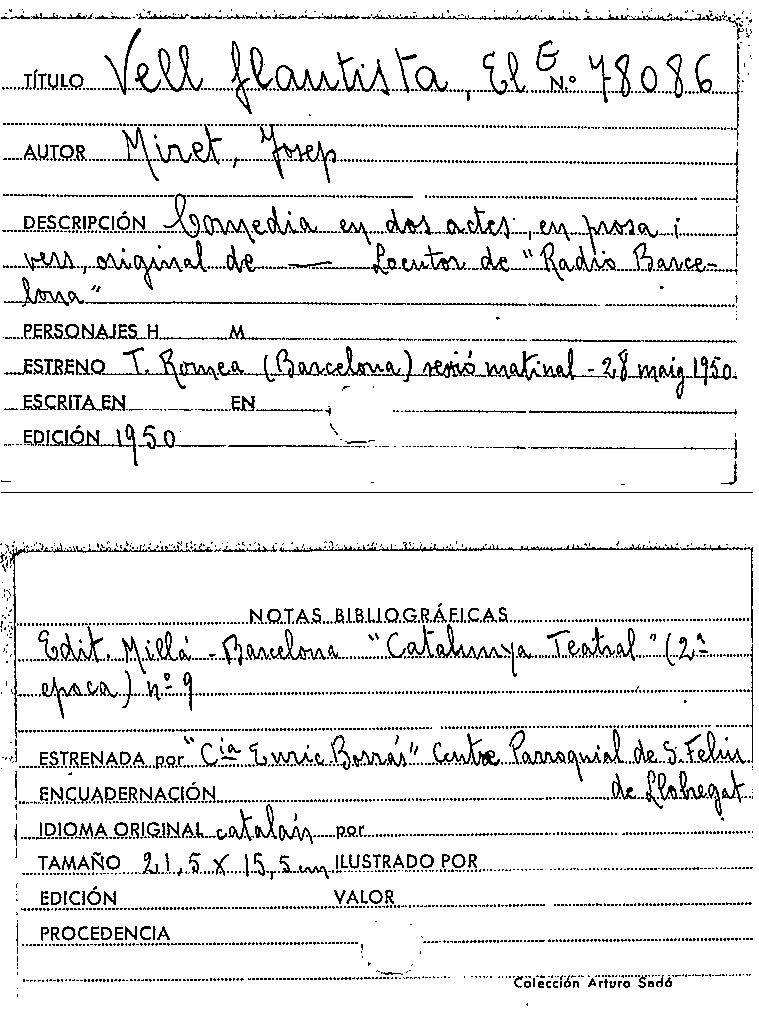 TÍTULO Vell flautista, El E N.º 78086
AUTOR Miret, Josep
DESCRIPCIÓN Comedia en dos actes, en prosa i
vers, original de — Locutor de "Radio Barce-
lona"
PERSONAJES H. M.
ESTRENO T. Romea (Barcelona) sesió matinal - 28 maig 1950.
ESCRITA EN EN
EDICIÓN 1950
NOTAS BIBLIOGRÁFICAS
Edit. Millá - Barcelona "Catalunya Teatral" (2ª
epoca) nº 9
ESTRENADA por "Cia Enric Borrás" Centre Parroquial de S. Feliu
de Llobregat
ENCUADERNACIÓN
IDIOMA ORIGINAL catalán por
TAMAÑO 21,5 x 15,5 cm ILUSTRADO POR
EDICIÓN VALOR
PROCEDENCIA
Colección Arturo Sedó